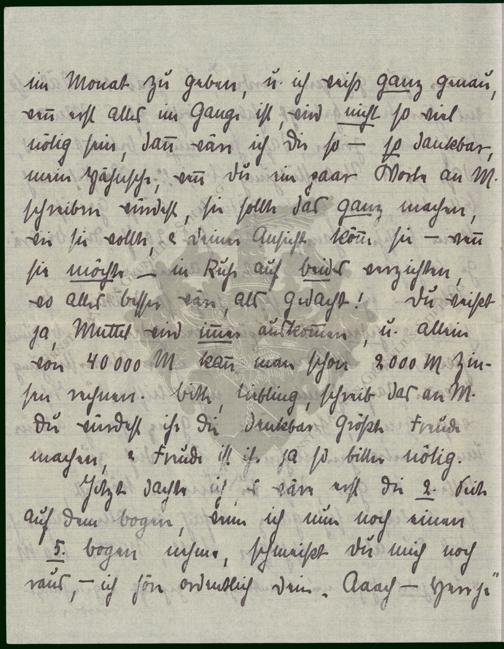 im Monat zu geben, u. ich weiß ganz genau,
wenn erst alles im Gange ist, wird nicht so viel
nötig sein, dann wäre ich Dir so – so dankbar,
mein, wenn Du ein paar Worte an M.
schreiben würdest, sie sollte das ganz machen,
wie sie wollte, deiner Ansicht könne sie – wenn
sie möchte – in Ruhe auf beides verzichten,
wo alles besser wäre, als gedacht! Du weißt
ja, Muttel wird immer auskommen, u. allein
von 40 000 M. kann man schon 2000 M. Zin-
sen rechnen. Bitte, Liebling, schreib das an M.
Du würdest ihr die denkbar größte Freude
machen, u. Freude ist ihr ja so bitter nötig.
Jetzt dachte ich, es wäre erst die 2. Seite
auf dem Bogen, wenn ich nun noch einen
5. Bogen nehme, schmeißt Du mich noch
raus, – ich höre ordentlich dein „Aaach – Herrje"